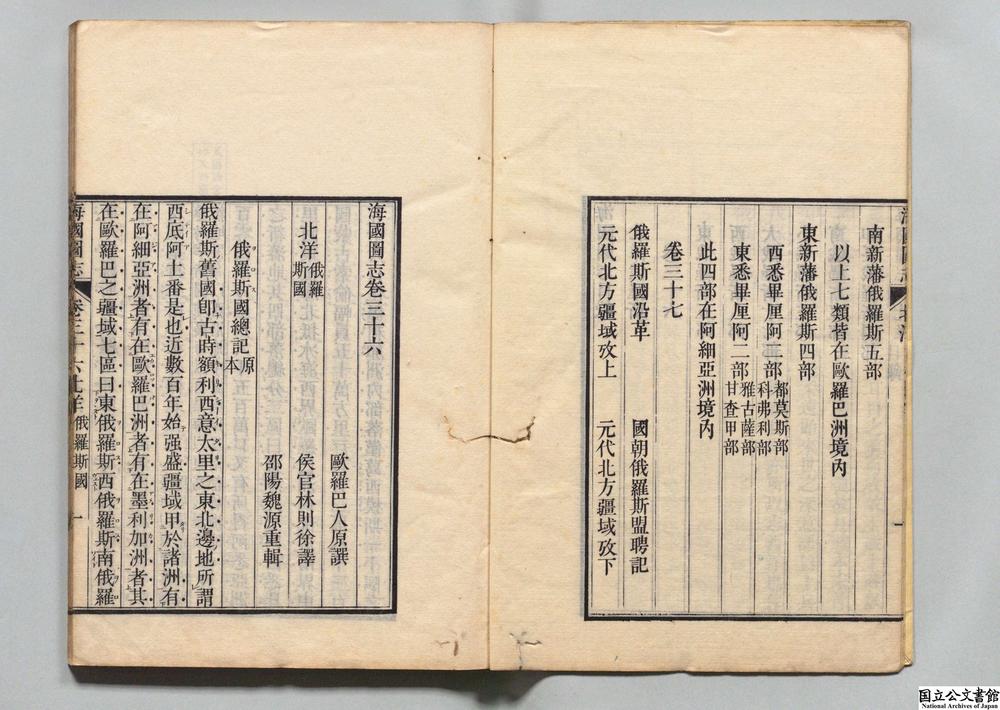 南新藩俄羅斯五部
以上七類皆在歐羅巴洲境內
東新藩俄羅斯四部
西悉畢厘阿二部都莫斯部科弗利部
東悉畢厘阿二部雅古薩部甘查甲部
此四部在阿細亞洲境內
卷三十七
俄羅斯國沿革 國朝俄羅斯盟聘記
元代北方疆域攷上 元代北方疆域攷下
海國圖志卷三十六
歐羅巴人原譔
北洋俄羅斯國 侯官林則徐譯
邵陽魏源重輯
俄羅斯國總記原本
俄羅斯舊國卽古時額利西意太里之東北邊地所謂
西底阿土番是也近數百年始强盛疆域甲於諸洲有
在阿細亞洲者有在歐羅巴洲者有在墨利加洲者其
在歐羅巴之疆域七區曰東俄羅斯西俄羅斯南俄羅
海國圖志 卷三十六北洋 俄羅斯國 一
国立公文書館
National Archives of Japan